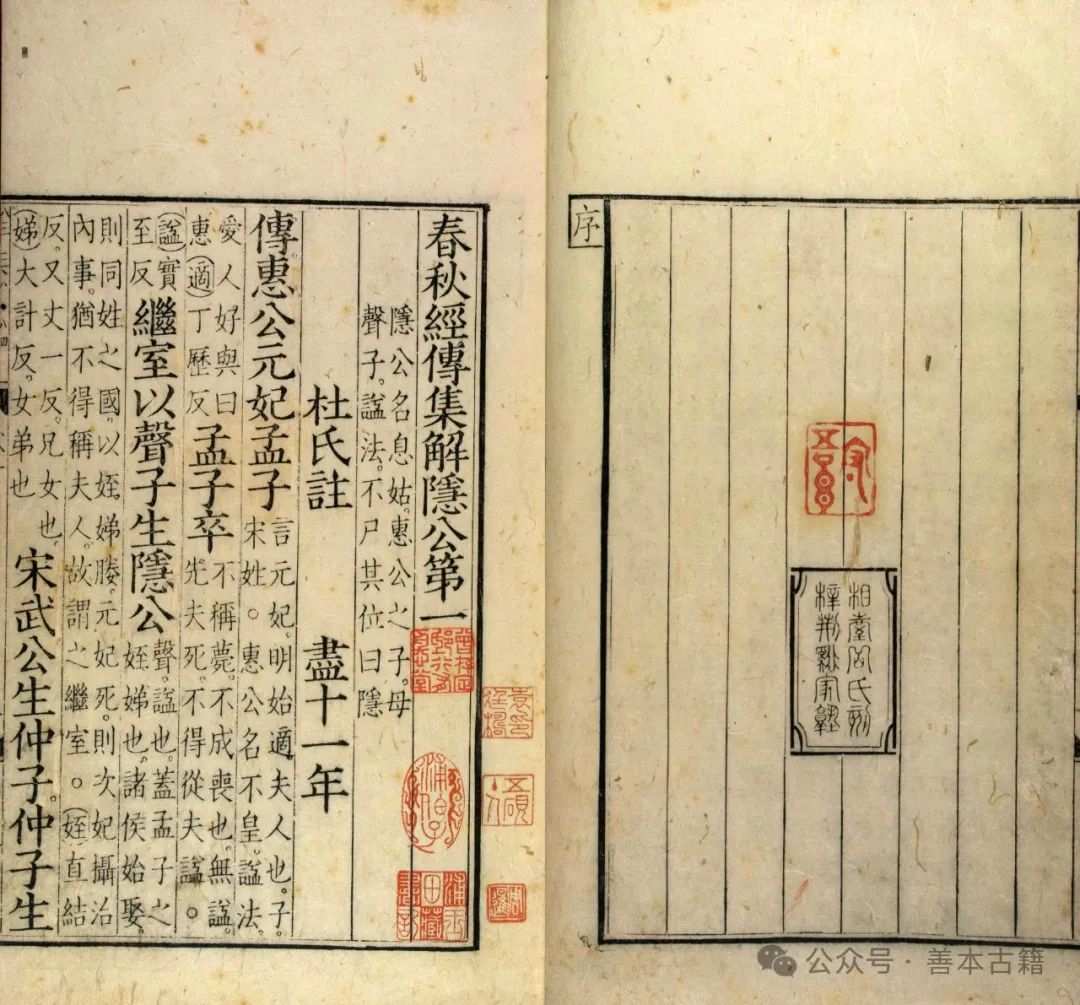 序
相臺岳氏刻
梓荊谿家塾
春秋經傳集解隱公第一
隱公名息姑。惠公之子。母
聲子。諡法。不尸其位曰隱
杜氏註 盡十一年
傳惠公元妃孟子 言元妃。明始適夫人也。子。宋姓。惠公名不皇。諡法。
愛人好與曰惠。適丁歷反 孟子卒 不稱薨。不成喪也。無諡。先夫死。不得從夫諡。
諡實至反 繼室以聲子生隱公 聲。諡也。蓋孟子之姪娣也。諸侯始娶。
則同姓之國。以姪娣媵。元妃死。則次妃攝治內事。猶不得稱夫人。故謂之繼室。姪直結
反。又丈一反。兄女也。娣大計反。女弟也 宋武公生仲子。仲子生
浦伯子
浦玉田藏
周暹
公众号 · 善本古籍